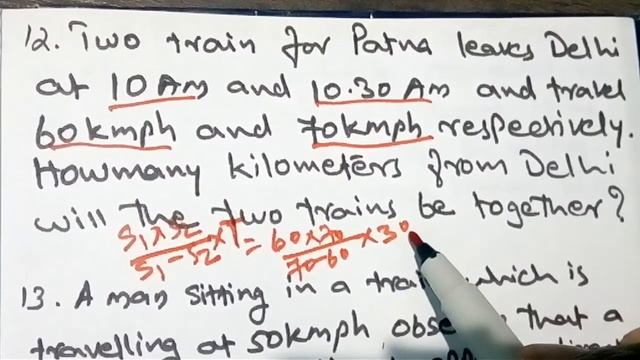 12. Two train for Patna leaves Delhi
at 10 AM and 10.30 AM and travel
60 kmph and 70 kmph respectively.
How many kilometers from Delhi
will the two trains be together?
S1×S2/S1-S2 ×T = 60×70/70-60 ×30
13. A man sitting in a which is
travelling at 50 kmph that a